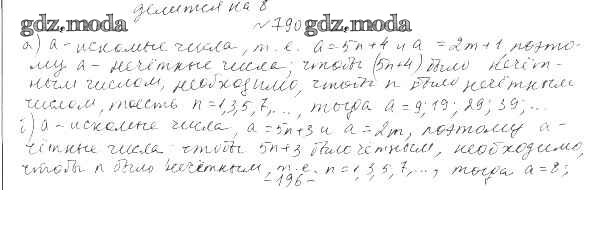 делится на 8
gdz.moda №790 gdz.moda
а) а - искомые числа, т.е. a = 5n+4 и a = 2m+1, поэто-
му а - нечётные числа; чтобы (5n+4) было нечёт-
ным числом, необходимо, чтобы n было нечётным
числом, тоесть n=1,3,5,7,..., тогда a = 9; 19; 29; 39; ...
г) а - искомые числа, a = 5n+3 и a = 2m, поэтому а -
чётные числа. чтобы 5n+3 было чётным, необходимо,
чтобы n было нечётным, т.е. n=1,3,5,7,..., тогда a=8;
-196-